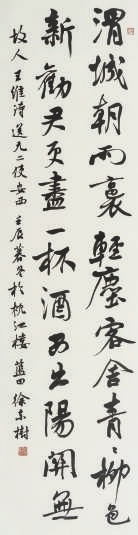 渭城朝雨裛輕塵客舍青々柳色
新勸君更盡一杯酒西出陽關無
故人 王維詩送元二使安西 壬辰暮冬於枕江樓 藍田徐東樹